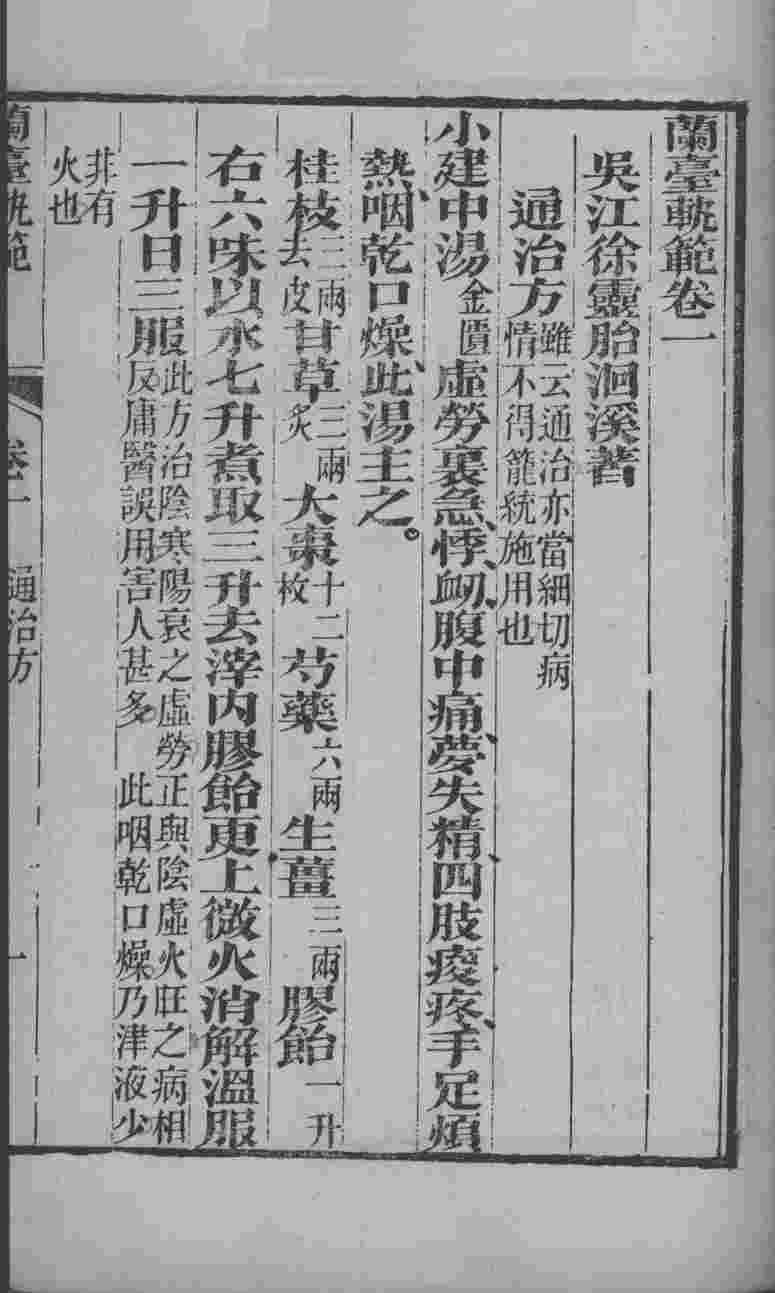 蘭臺軌範卷一
吳江徐靈胎洄溪著
通治方雖云通治亦當細切病情不得籠統施用也
小建中湯金匱虛勞裏急、悸、衂、腹中痛、夢失精、四肢痠疼、手足煩
熱、咽乾口燥、此湯主之。
桂枝三兩去皮甘草三兩炙大棗十二枚芍藥六兩生薑三兩膠飴一升
右六味以水七升煮取三升去滓內膠飴更上微火消解溫服
一升日三服此方治陰寒陽衰之虛勞正與陰虛火旺之病相反庸醫誤用害人甚多 此咽乾口燥乃津液少
非有火也
蘭臺軌範 卷一 通治方 一